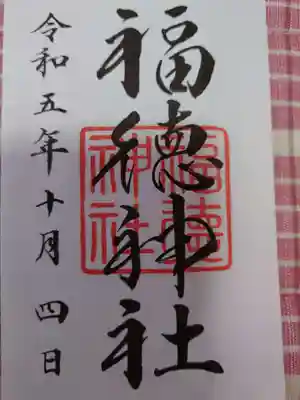 福徳神社
福徳神社
令和五年十月四日